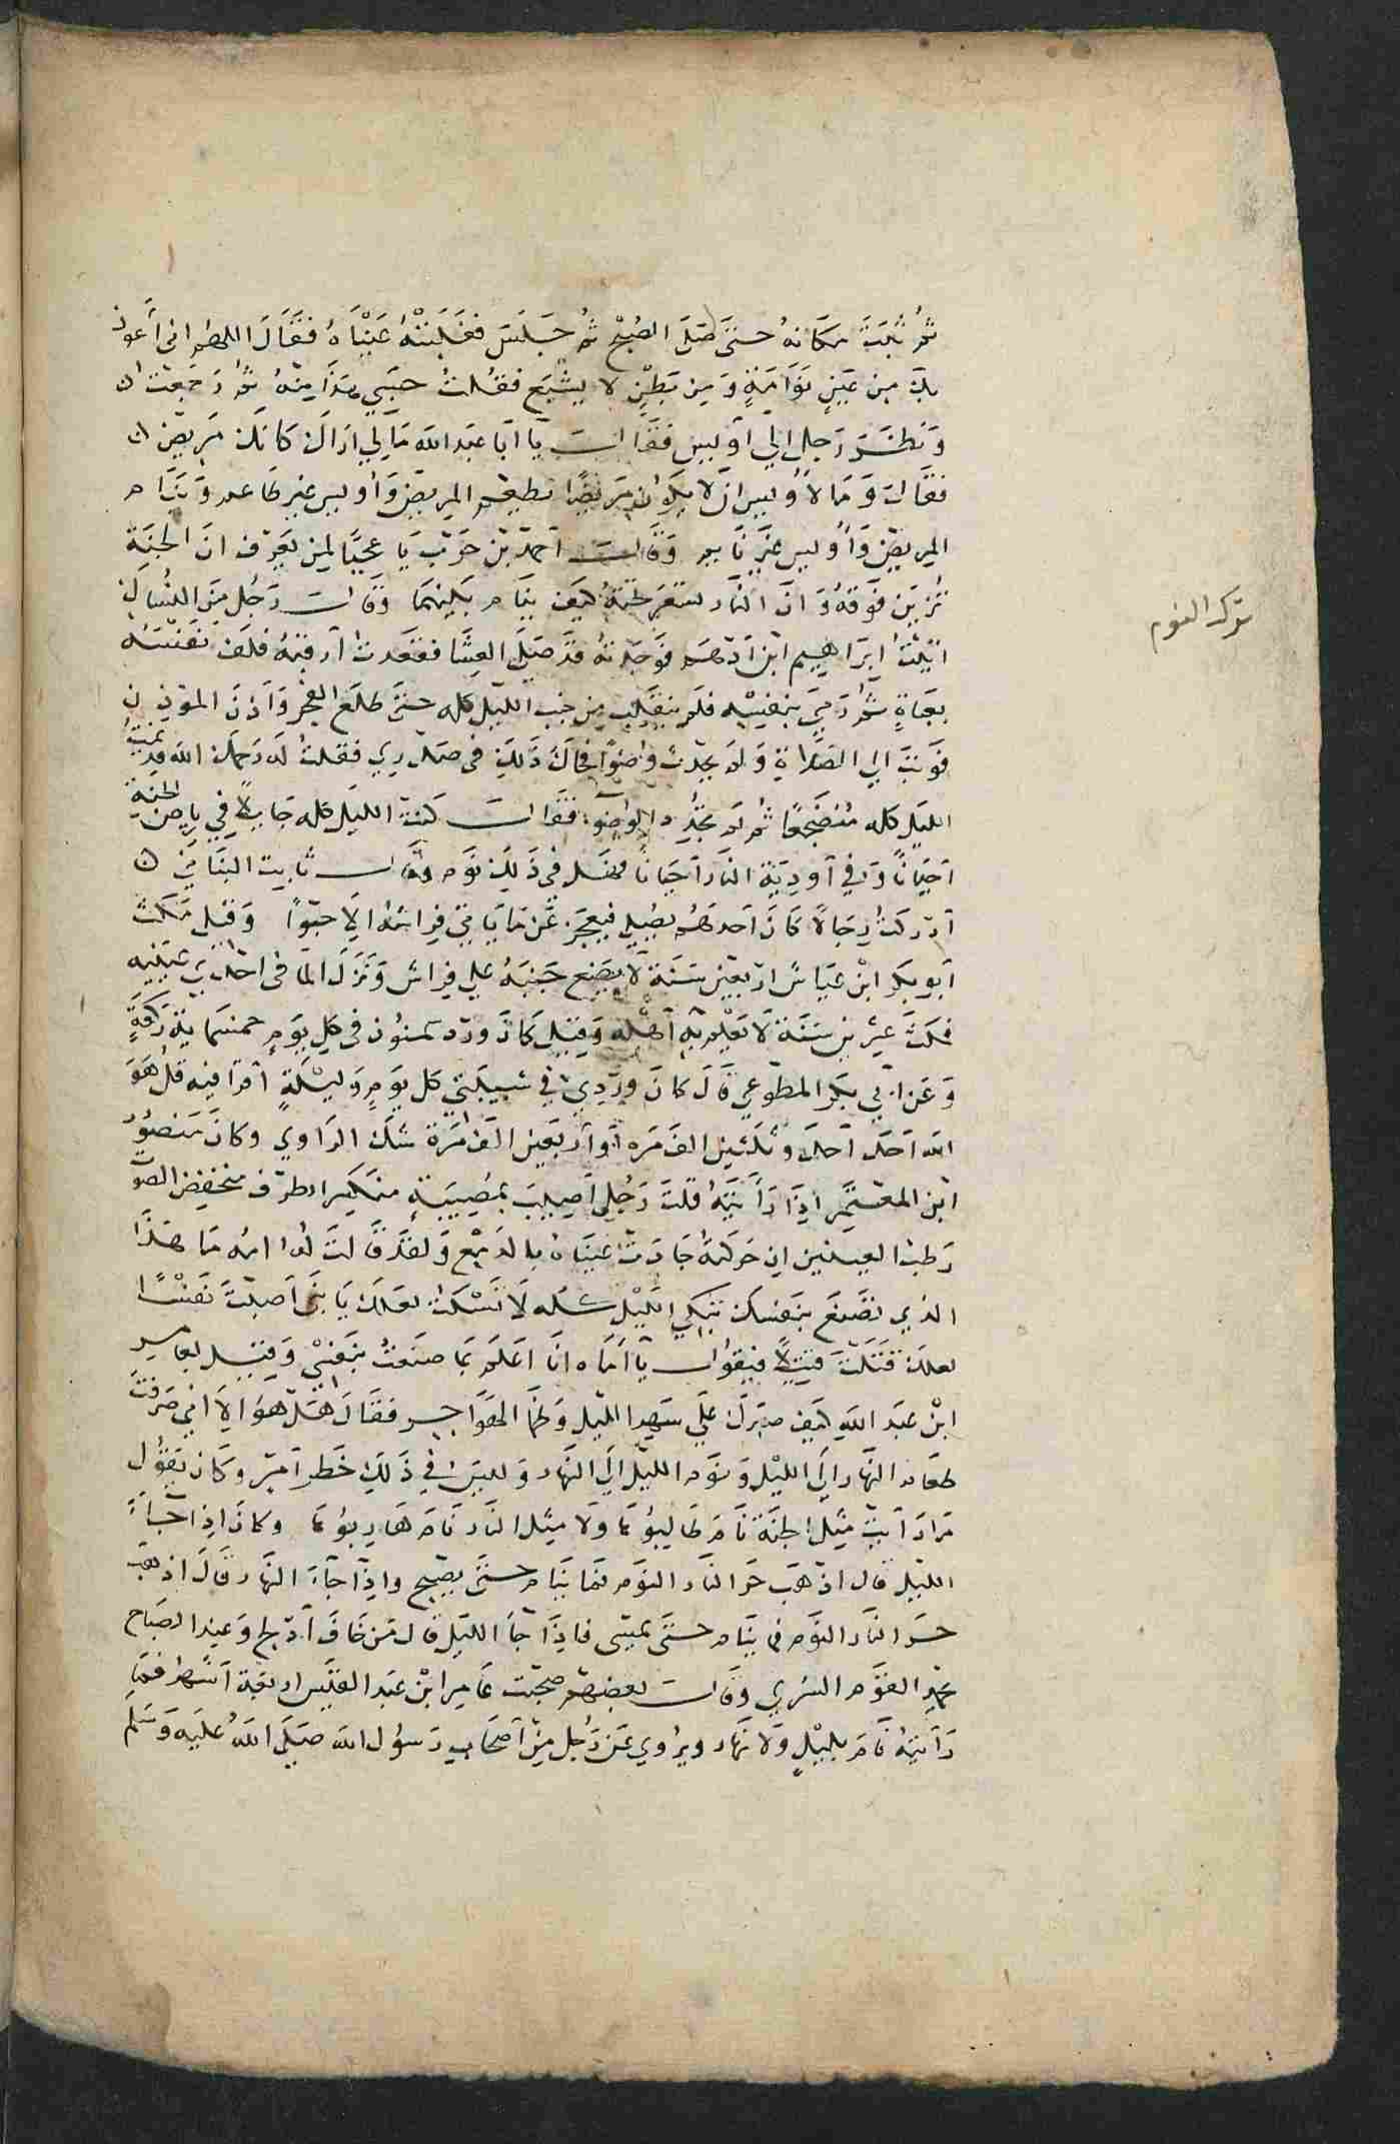 ثم ثبت مكانه حتى صلى الصبح ثم جلس فغلبته عيناه فقال اللهم اني أعوذ
بك من عين نوامة ومن بطن لا يشبع فقلت حسبي هذا منه ثم رجعت
ونظر رجل الي أويس فقال يا أبا عبد الله مالي اراك كانك مريض
فقال وما لأويس ان لا يكون مريضا يطعم المريض وأويس غير طاعم وينام
المريض وأويس غير نايم وقال احمد بن حرب يا عجبا لمن يعرف ان الجنة
تزين فوقه وان النار تسعر تحته كيف ينام بينهما وقال رجل من النساك
اتيت ابراهيم ابن أدهم فوجدته قد صلى العشا فقعدت أرقبه فلف نفسه
بعباة ثم رمى بنفسه فلم ينقلب من جنب الليل كله حتى طلع الفجر وأذن الموذن
فوثب الي الصلاة ولم يحدث وضوا فحاك ذلك في صدري فقلت له رحمك الله قد نمت
الليل كله مضجعا ثم لم تجدد الوضو فقال كنت الليل كله جايلا في رياض الجنة
احيانا وفي أودية النار أحيانا فهل في ذلك نوم وقال ثابت البناني
أدركت رجالا كان أحدهم يصلي فيعجز عن ما ياتي فراشه الا حبوا وقيل مكث
أبو بكر ابن عياش اربعين سنة لا يضع جنبه علي فراش ونزل الما في احدى عينيه
فمكث عشرين سنة لا يعلم به أهله وقيل كان ورد سمنون في كل يوم خمسماية ركعة
وعن أبي بكر المطوعي قال كان وردي في شبيبتي كل يوم وليلة أقرا فيه قل هو
الله أحد أحد وثلثين الف مره أو أربعين الف مرة شك الراوي وكان منصور
ابن المعتمر اذا رأيته قلت رجل أصيب بمصيبة منكسر الطرف منخفض الصوت
رطب العينين ان حركته جادت عيناه بالدمع ولقد قالت له امه ما هذا
الذي تضنع بنفسك تبكي الليل كله لا تسكت لعلك يا بني أصبت نفسا
لعلك قتلت قتيلا فيقول يا أماه انا اعلم بما صنعت بنفسي وقيل لعامر
ابن عبد الله كيف صبرك علي سهر الليل وظما الهواجر فقال هل هو الا اني صرفت
طعام النهار الى الليل ونوم الليل الى النهار وليس في ذلك خطر امر وكان يقول
ما رأيت مثل الجنة نام طالبوها ولا مثل النار نام هاربوها وكان اذا جاء
الليل قال اذهب حر النار النوم فما ينام حتى يصبح واذا جاء النهار قال اذهب
حر النار النوم فما ينام حتى يمسى فاذا جا الليل قال من خاف أدلج وعند الصباح
يحمد القوم السري وقال بعضهم صحبت عامر ابن عبد القيس اربعة أشهر فما
رأيته نام بليل ولا نهار ويروي عن رجل من أصحاب رسول الله صلى الله عليه وسلم
ترك النوم